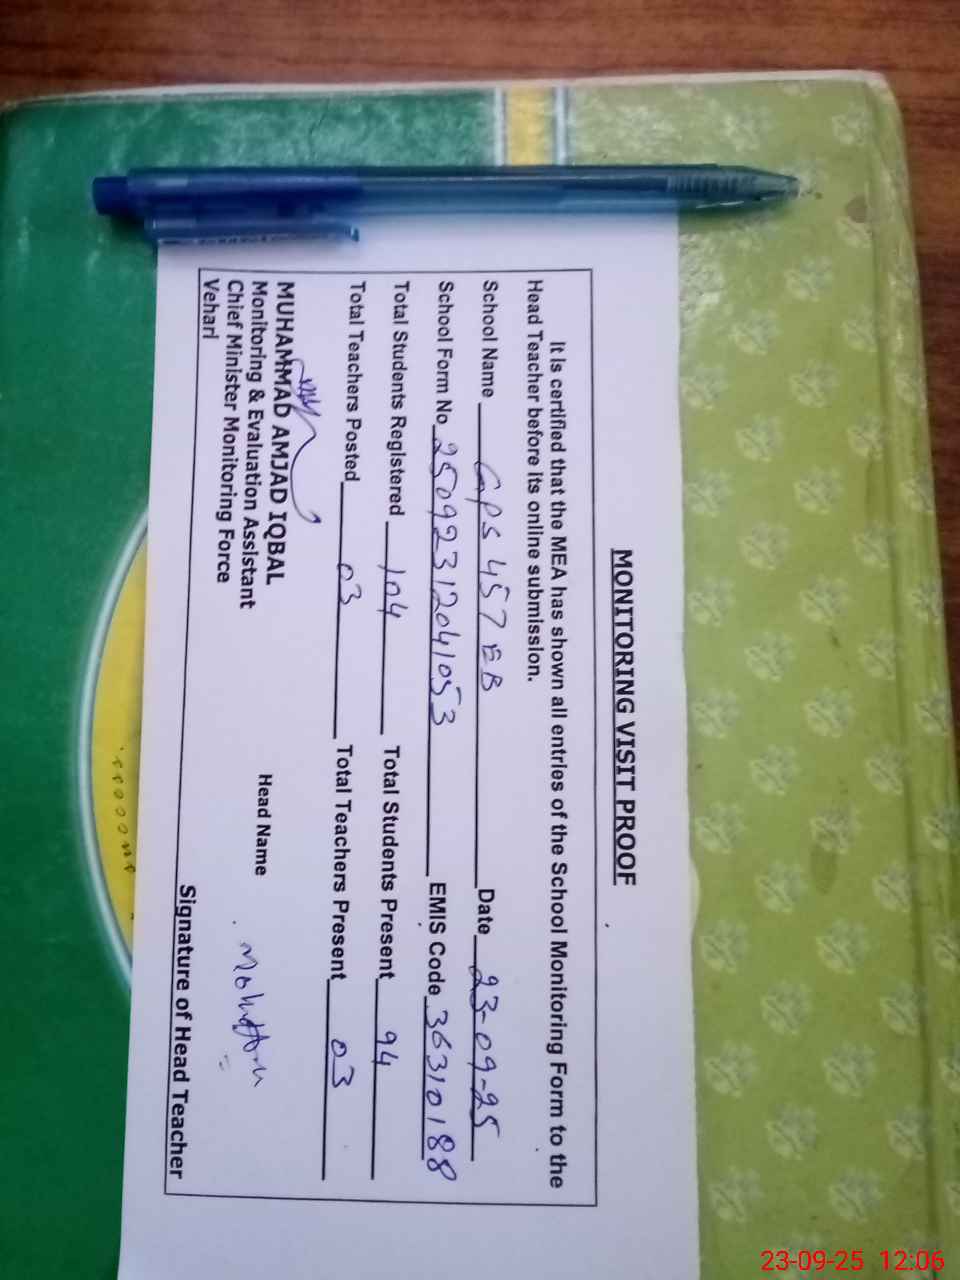 MONITORING VISIT PROOF
It is certified that the MEA has shown all entries of the School Monitoring Form to the
Head Teacher before its online submission.
School Name GPS 457 EB Date 23-09-25
School Form No 25092312041053 EMIS Code 36310188
Total Students Registered 104 Total Students Present 94
Total Teachers Posted 03 Total Teachers Present 03
MUHAMMAD AMJAD IQBAL
Monitoring & Evaluation Assistant Head Name
Chief Minister Monitoring Force
Vehari
Signature of Head Teacher
23-09-25 12:06